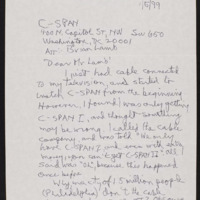 1/5/99
C-SPAN
400 N. Capitol St, NW Suite 650
Washington, DC 20001
Att: Brian Lamb
"Dear Mr Lamb"
I just had cable connected
to my television, and started to
watch C-SPAN from the beginning.
However, I found I was only getting
C-SPAN I, and thought something
may be wrong. I called the cable
company, and was told "We only
have C-SPAN I, and even with
money you can't get C-SPAN II"
said was "OK", because this happened
once before.
Why can't 1.5 million people
(Philadelphia) don't the cable